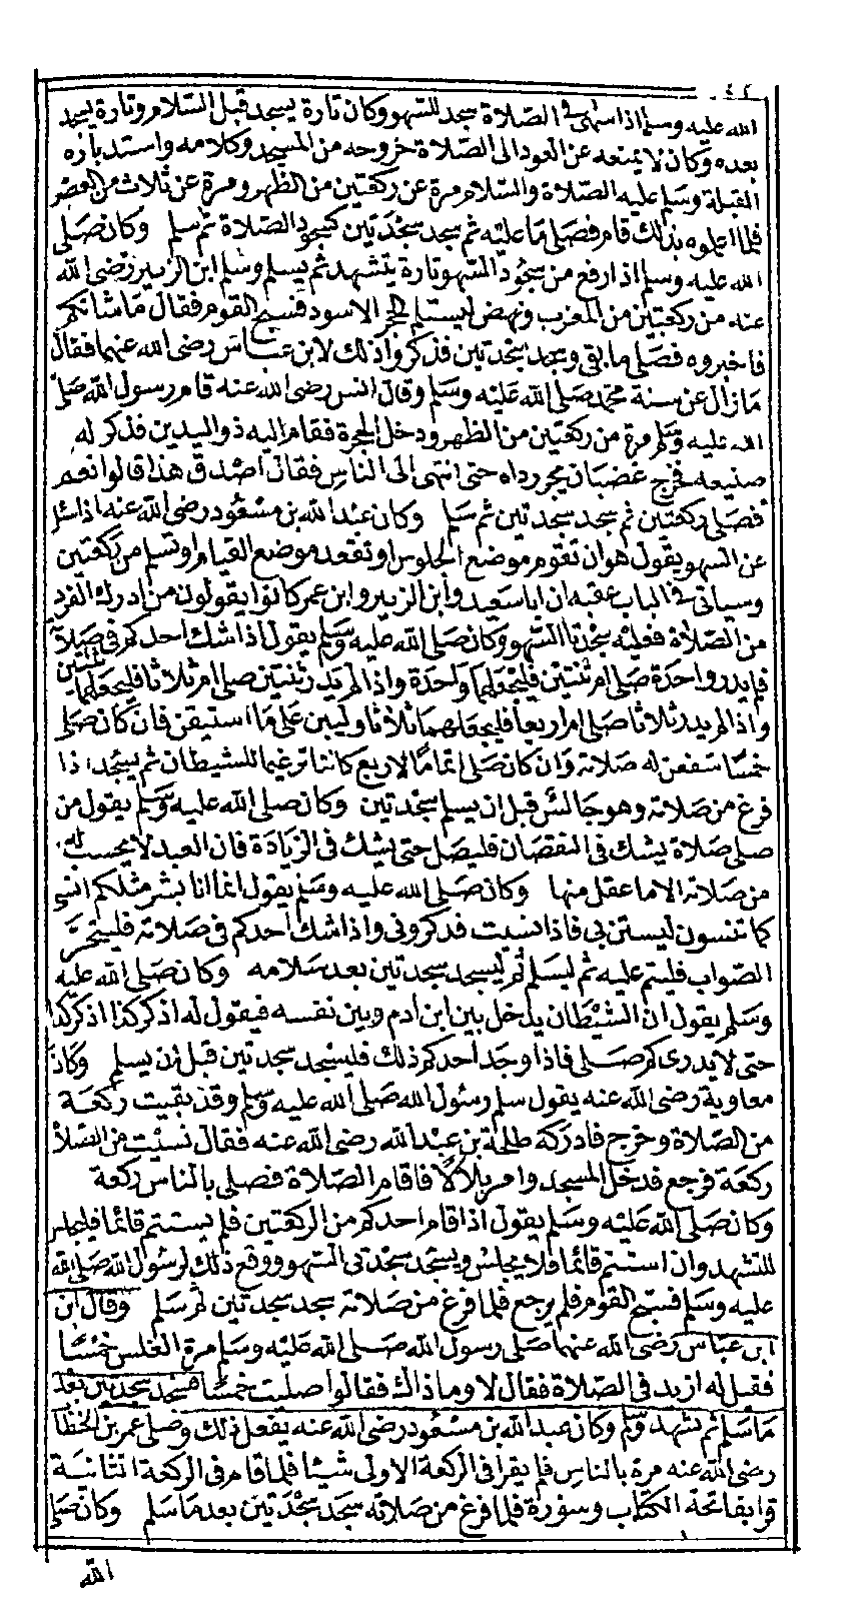 الله عليه وسلم اذا سهى فى الصلاة سجد للسهو وكان تارة يسجد قبل السلام وتارة يسجد
بعده وكان لا يمنعه عن العود الى الصلاة خروجه من المسجد وكلامه واستدباره
القبلة وسلم عليه الصلاة والسلام مرة عن ركعتين من الظهر ومرة عن ثلاث من العصر
فلما اعلموه بذلك قام فصلى ما عليه ثم سجد سجدتين كسجود الصلاة ثم سلم وكان صلى
الله عليه وسلم اذا رفع من سجود السهو تارة يتشهد ثم يسلم وسلم ابن الزبير رضى الله
عنه من ركعتين من المغرب ونهض ليستلم الحجر الاسود فسبح القوم فقال ما شانكم
فاخبروه فصلى ما بقى وسجد سجدتين فذكروا ذلك لابن عباس رضى الله عنهما فقال
ما زال عن سنة محمد صلى الله عليه وسلم وقال انس رضى الله عنه قام رسول الله صلى
الله عليه وسلم مرة من ركعتين من الظهر ودخل الحجرة فقام اليه ذو اليدين فذكر له
صنيعه فخرج غضبان يجر رداه حتى انتهى الى الناس فقال اصدق هذا قالوا نعم
فصلى ركعتين ثم سجد سجدتين ثم سلم وكان عبد الله بن مسعود رضى الله عنه اذا سئل
عن السهو يقول هو ان تقوم موضع الجلوس او تقعد موضع القيام او تسلم من ركعتين
وسياتى فى الباب عقبه ان ابا سعيد وابن الزبير وابن عمر كانوا يقولون من ادرك الفرد
من الصلاة فعليه سجدتا السهو وكان صلى الله عليه وسلم يقول اذا شك احدكم فى صلاته
فلم يدر واحدة صلى ام ثنتين فليجعلهما واحدة واذا لم يدر ثنتين صلى ام ثلاثا فليجعلهما ثنتين
واذا لم يدر ثلاثا صلى ام اربعا فليجعلهما ثلاثا وليبن على ما استيقن فان كان صلى
خمسا شفعن له صلاته وان كان صلى اتماما لاربع كانتا ترغيما للشيطان ثم يسجد اذا
فرغ من صلاته وهو جالس قبل ان يسلم سجدتين وكان صلى الله عليه وسلم يقول من
صلى صلاة يشك فى النقصان فليصل حتى يشك فى الزيادة فان العبد لا يحسب له
من صلاته الا ما عقل منها وكان صلى الله عليه وسلم يقول انما انا بشر مثلكم انسى
كما تنسون ليستن بى فاذا نسيت فذكرونى واذا شك احدكم فى صلاته فليتحر
الصواب فليتم عليه ثم ليسلم ثم ليسجد سجدتين بعد سلامه وكان صلى الله عليه
وسلم يقول ان الشيطان يدخل بين ابن ادم وبين نفسه فيقول له اذكر كذا اذكر كذا
حتى لا يدرى كم صلى فاذا وجد احدكم ذلك فليسجد سجدتين قبل ان يسلم وكان
معاوية رضى الله عنه يقول سلم رسول الله صلى الله عليه وسلم وقد بقيت ركعة
من الصلاة وخرج فادركه طلحة بن عبد الله رضى الله عنه فقال نسيت من الصلاة
ركعة فرجع فدخل المسجد وامر بلالا فاقام الصلاة فصلى بالناس ركعة
وكان صلى الله عليه وسلم يقول اذا قام احدكم من الركعتين فلم يستتم قائما فليجلس
للتشهد وان استتم قائما فلا يجلس ويسجد سجدتى السهو ووقع ذلك لرسول الله صلى الله
عليه وسلم فسبح القوم فلم يرجع فلما فرغ من صلاته سجد سجدتين ثم سلم وقال ابن
ابن عباس رضى الله عنهما صلى رسول الله صلى الله عليه وسلم مرة الغلس خمسا
فقيل له ازيد فى الصلاة فقال لا وما ذاك فقالوا صليت خمسا فسجد سجدتين بعد
ما سلم ثم تشهد وسلم وكان عبد الله بن مسعود رضى الله عنه يفعل ذلك وصلى عمر بن الخطاب
رضى الله عنه مرة بالناس فلم يقرا فى الركعة الاولى شيئا فلما قام فى الركعة الثانية
قرا بفاتحة الكتاب وسورة فلما فرغ من صلاته سجد سجدتين بعد ما سلم وكان صلى
الله